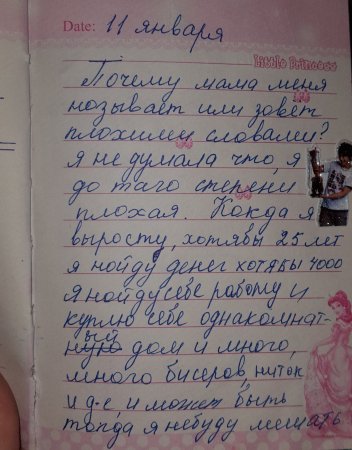 Date: 11 января
Little Princess
Почему мама меня
називает или зовёт
плохими словами?
я не думала что, я
до таго степени
плохая. Кокда я
выросту, хотябы 25 лет
я нойду денег хотябы 4000
я нойду себе работу и
куплю себе однакомнат-
ый дом и много,
много бисеров, ниток
и д-с, и может быть
топда я небуду мешать